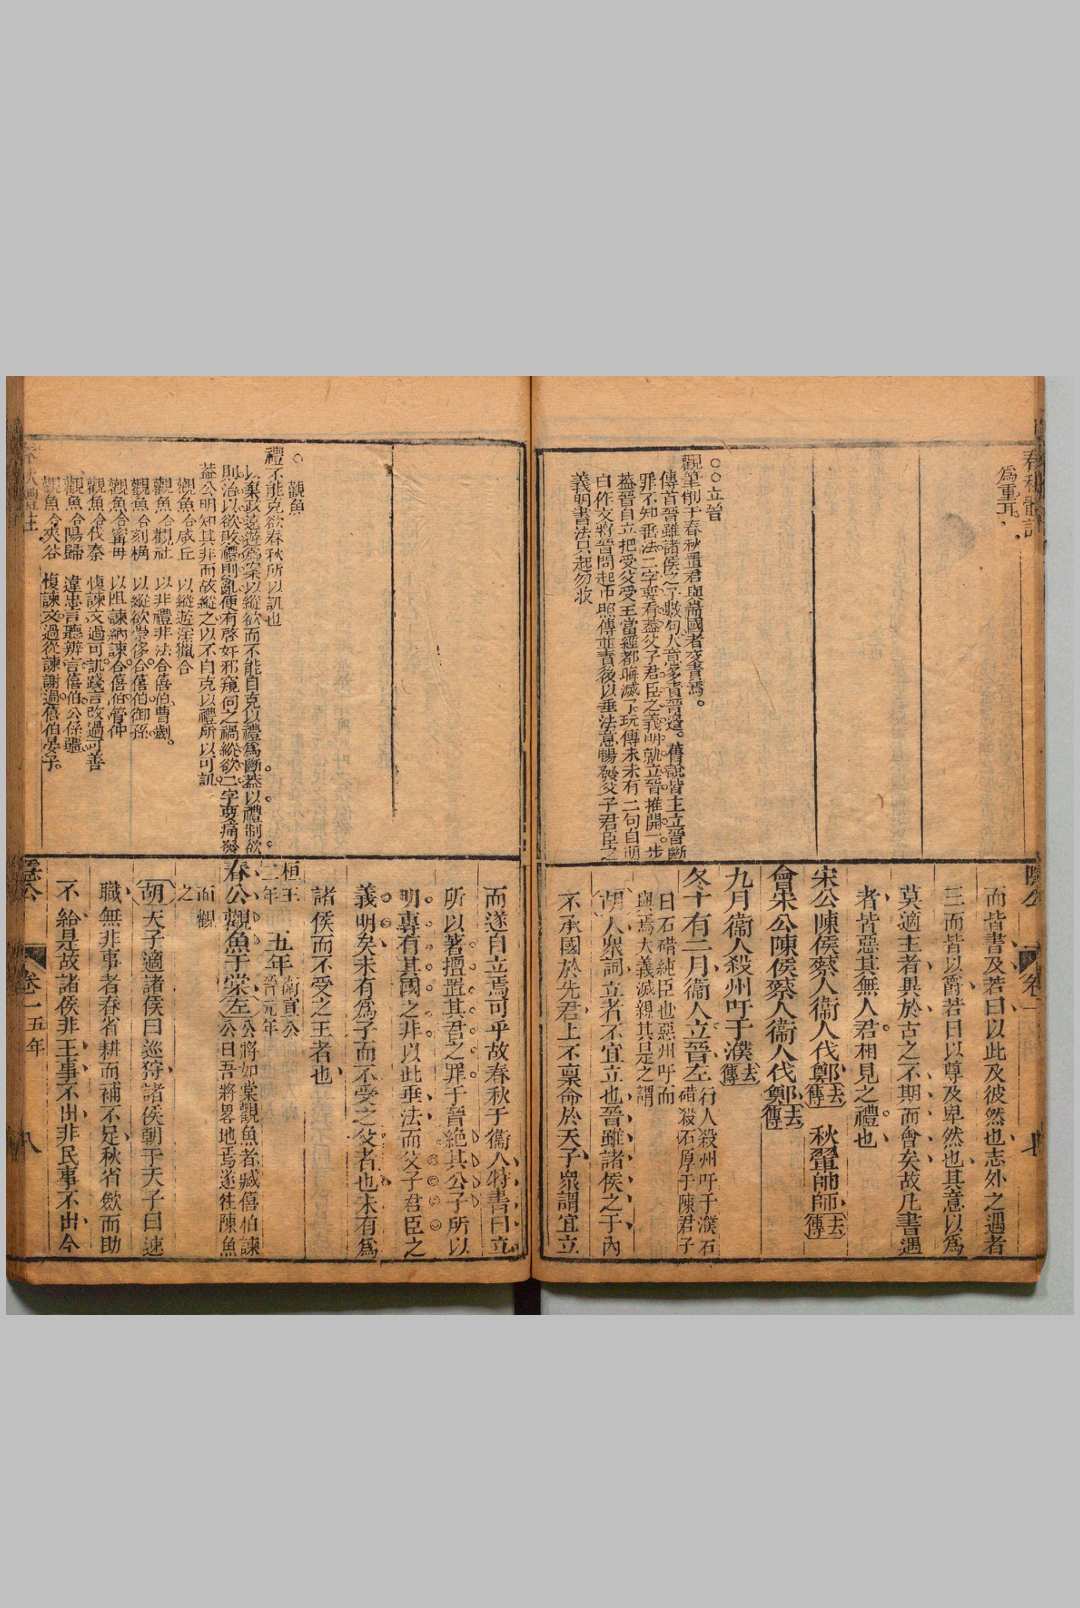 春秋體註
為重耳
○○立晉
觀筆削于春秋置君與諸國者交書焉。
傳首晉雖諸侯之子數句人意多責晉邊。舊說皆主立晉斷
罪不知垂法二字要看蓋父子君臣之義明就立晉推開一步
蓋晉自立把受父受王當經都晦滅了玩傳末未有二句自明
白作文將晉問起中照傳並責後以垂法意暢發父子君臣之
義明書法只起勿收
隱公
卷一
七
而皆書及若曰以此及彼然也志外之遇者
三而皆以爵若曰以尊及卑然也其意以為
莫適主者異於古之不期而會矣故凡書遇
者皆惡其無人君相見之禮也
宋公陳侯蔡人衞人伐鄭去傳 秋翬帥師去傳
會宋公陳侯蔡人衞人伐鄭去傳
九月衞人殺州吁于濮去傳
冬十有二月衞人立晉左衍人殺州吁于濮石碏殺石厚于陳君子
曰石碏純臣也惡州吁而與焉大義滅親其是之謂
胡人衆詞立者不宜立也晉雖諸侯之子內
不承國於先君上不稟命於天子衆謂宜立
而遂自立焉可乎故春秋于衞人特書曰立
所以著擅置其君之罪于晉絕其公子所以
明專有其國之非以此垂法而父子君臣之
義明矣未有為子而不受之父者也未有為
諸侯而不受之王者也
桓王二年 五年衛宣公晉元年
春公觀魚于棠左公將如棠觀魚者臧僖伯諫公曰吾將畧地焉遂往陳魚
而觀之
胡天子適諸侯曰巡狩諸侯朝于天子曰述
職無非事者春省耕而補不足秋省斂而助
不給是故諸侯非王事不出非民事不出今
○ 觀魚
禮不能克欲春秋所以訊也
以棄政遠遊為案以縱欲而不能自克以禮為斷蓋以禮制欲
則治以欲敗禮則亂便有啓奸邪窺伺之禍縱欲二字要痛發
蓋公明知其非而故縱之以不自克以禮所以可訊
觀魚合咸丘 以縱遊淫獵合
觀魚合觀社 以非禮非法合僖伯曹劌。
觀魚合刻桷 以縱欲崇侈合僖伯御孫
觀魚合甯母 以阻諫納諫合僖伯管仲
觀魚合伐秦 愎諫文過可訊踐言改過可善
觀魚合陽歸 違忠言聽辨言僖伯公孫彊
觀魚合夾谷 愎諫文過從諫謝過僖伯晏子。
春秋體註
隱公
卷一 五年
八